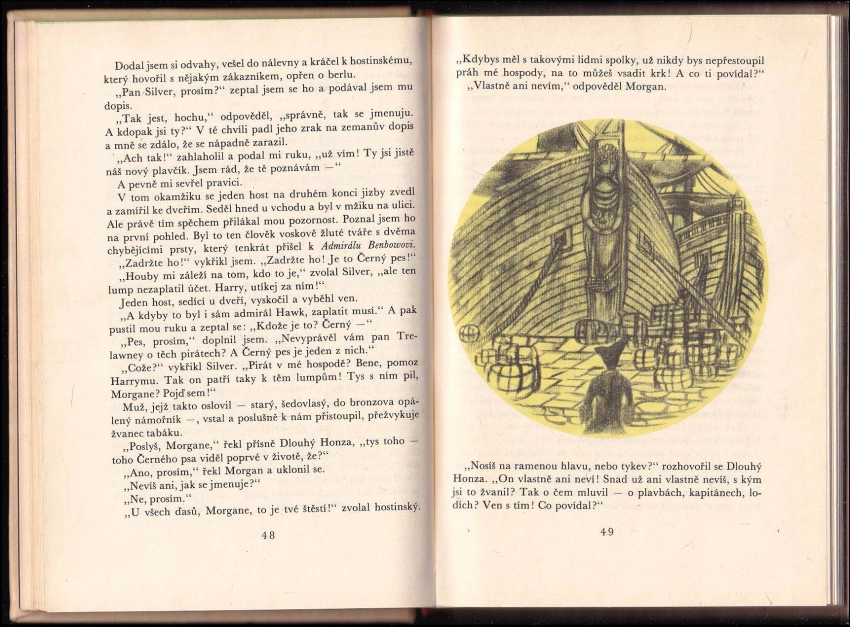 Dodal jsem si odvahy, vešel do nálevny a kráčel k hostinskému,
který hovořil s nějakým zákazníkem, opřen o berlu.
„Pan Silver, prosím?“ zeptal jsem se ho a podával jsem mu
dopis.
„Tak jest, hochu,“ odpověděl, „správně, tak se jmenuju.
A kdopak jsi ty?“ V té chvíli padl jeho zrak na zemanův dopis
a mně se zdálo, že se nápadně zarazil.
„Ach tak!“ zahlaholil a podal mi ruku, „už vím! Ty jsi jistě
náš nový plavčík. Jsem rád, že tě poznávám —“
A pevně mi sevřel pravici.
V tom okamžiku se jeden host na druhém konci jizby zvedl
a zamířil ke dveřím. Seděl hned u vchodu a byl v mžiku na ulici.
Ale právě tím spěchem přilákal mou pozornost. Poznal jsem ho
na první pohled. Byl to ten člověk voskově žluté tváře s dvěma
chybějícími prsty, který tenkrát přišel k Admirálu Benbowovi.
„Zadržte ho!“ vykřikl jsem. „Zadržte ho! Je to Černý pes!“
„Houby mi záleží na tom, kdo to je,“ zvolal Silver, „ale ten
lump nezaplatil účet. Harry, utíkej za ním!“
Jeden host, sedící u dveří, vyskočil a vyběhl ven.
„A kdyby to byl i sám admirál Hawk, zaplatit musí.“ A pak
pustil mou ruku a zeptal se: „Kdože je to? Černý —“
„Pes, prosím,“ doplnil jsem. „Nevyprávěl vám pan Tre-
lawney o těch pirátech? A Černý pes je jeden z nich.“
„Cože?“ vykřikl Silver. „Pirát v mé hospodě? Bene, pomoz
Harrymu. Tak on patří taky k těm lumpům! Tys s ním pil,
Morgane? Pojď sem!“
Muž, jejž takto oslovil — starý, šedovlasý, do bronzova opá-
lený námořník —, vstal a poslušně k nám přistoupil, přežvykuje
žvanec tabáku.
„Poslyš, Morgane,“ řekl přísně Dlouhý Honza, „tys toho —
toho Černého psa viděl poprvé v životě, že?“
„Ano, prosím,“ řekl Morgan a uklonil se.
„Nevíš ani, jak se jmenuje?“
„Ne, prosím.“
„U všech ďasů, Morgane, to je tvé štěstí!“ zvolal hostinský.
48
„Kdybys měl s takovými lidmi spolky, už nikdy bys nepřestoupil
práh mé hospody, na to můžeš vsadit krk! A co ti povídal?“
„Vlastně ani nevím,“ odpověděl Morgan.
„Nosíš na ramenou hlavu, nebo tykev?“ rozhovořil se Dlouhý
Honza. „On vlastně ani neví! Snad už ani vlastně nevíš, s kým
jsi to žvanil? Tak o čem mluvil — o plavbách, kapitánech, lo-
dích? Ven s tím! Co povídal?“
49